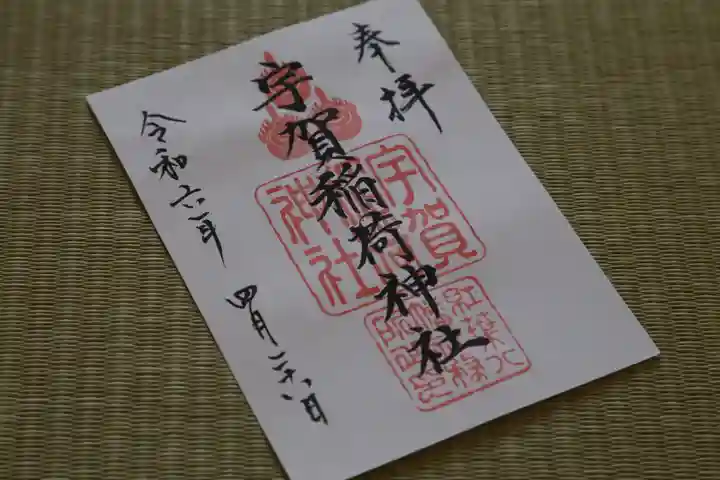 奉拝
宇賀稲荷神社
令和六年 四月二十八日
宇賀
神社